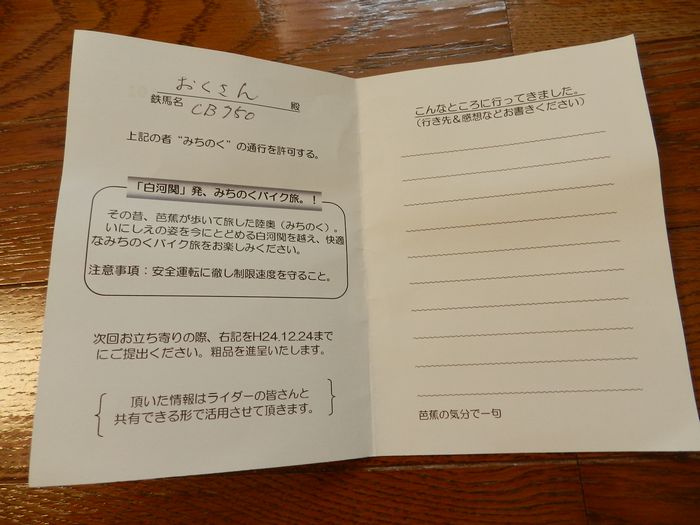 おくさん
殿
鉄馬名 CB750
上記の者“みちのく”の通行を許可する。
「白河関」発、みちのくバイク旅。！
その昔、芭蕉が歩いて旅した陸奥（みちのく）。
いにしえの姿を今にとどめる白河関を越え、快適
なみちのくバイク旅をお楽しみください。
注意事項：安全運転に徹し制限速度を守ること。
次回お立ち寄りの際、右記をH24.12.24まで
にご提出ください。粗品を進呈いたします。
頂いた情報はライダーの皆さんと
共有できる形で活用させて頂きます。
こんなところに行ってきました。
（行き先＆感想などお書きください）
芭蕉の気分で一句